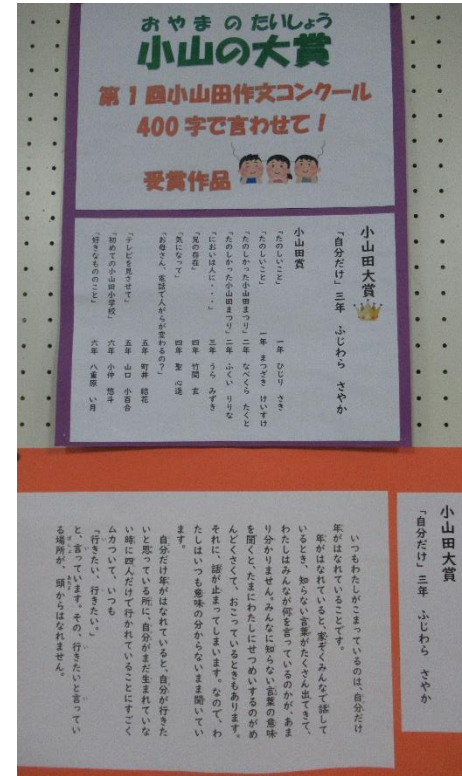 おやまのたいしょう
小山の大賞
第1回小山田作文コンクール
400字で言わせて!
受賞作品
小山田大賞
「自分だけ」三年 ふじわら さやか
小山田賞
「たのしいこと」 一年 ひじり さき
「たのしいこと」 一年 まつざき けいすけ
「たのしかった小山田まつり」二年 なべくら たくと
「たのしかった小山田まつり」二年 ふくい りりな
「においは人に・・・」 三年 うら みずき
「兄の存在」 四年 竹間 玄
「気になって」 四年 聖 心遥
「お母さん、電話で人がらが変わるの?」
五年 町井 結花
「テレビを見させて」 五年 山口 小百合
「初めての小山田小学校」 六年 小仲 悠斗
「好きなもののこと」 六年 八重原 い月
小山田大賞
「自分だけ」三年 ふじわら さやか
いつもわたしがこまっているのは、自分だけ
年がはなれていることです。
年がはなれていると、家ぞくみんなで話して
いるとき、知らない言葉がたくさん出てきて、
わたしはみんなが何を言っているのかが、あま
り分かりません。みんなに知らない言葉の意味
を聞くと、たまにわたしにせつめいするのがめ
んどくさくて、おこっているときもあります。
それに、話が止まってしまいます。なので、わ
たしはいつも意味の分からないまま聞いてい
ます。
自分だけ年がはなれていると、自分が行きた
いと思っている所に、自分がまだ生まれていな
い時に四人だけで行かれていることにすごく
ムカついて、いつも
「行きたい、行きたい。」
と、言っています。その、行きたいと言ってい
る場所が、頭からはなれません。